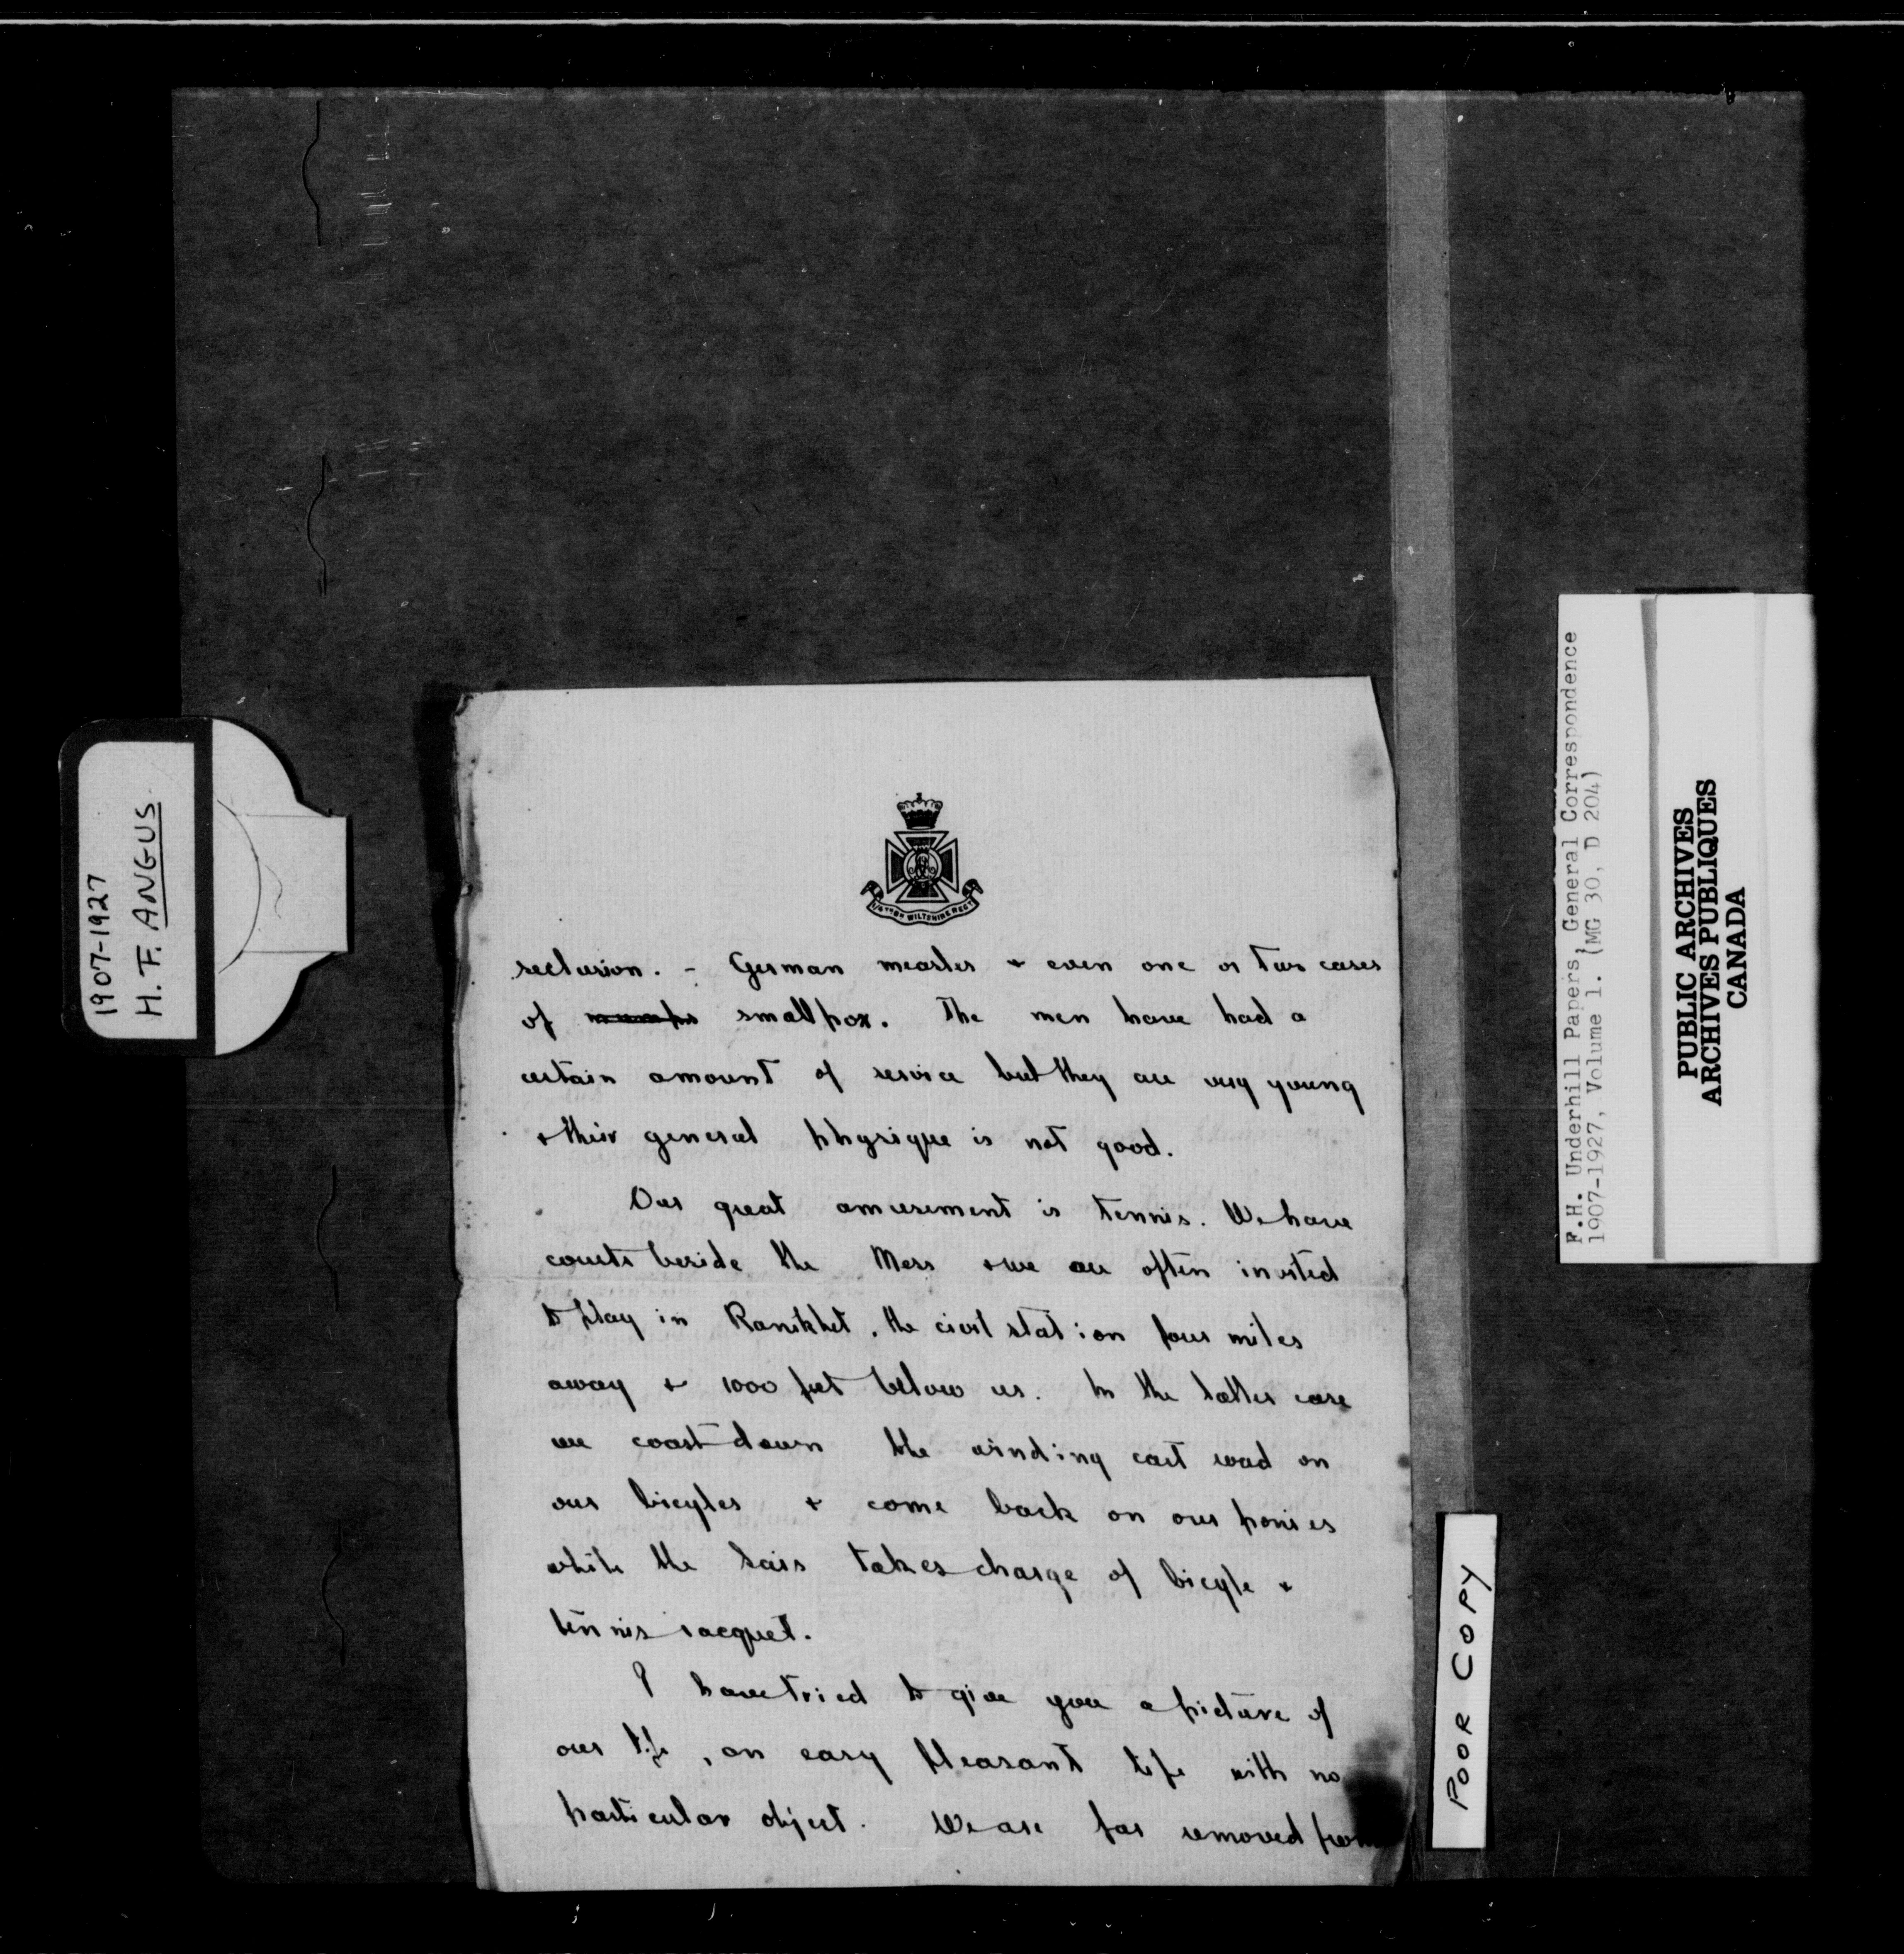 1907-1927
H. F. ANGUS.
1/4TH BN WILTSHIRE REGT
seclusion. - German measles + even one or two cases
of mumps smallpox. The men have had a
certain amount of service but they are very young
+ their general physique is not good.
Our great amusement is tennis. We have
courts beside the Mess + we are often invited
to play in Ranikhet, the civil station four miles
away + 1000 feet below us. In the latter case
we coast down the winding cart road on
our bicycles + come back on our ponies
while the sais takes charge of bicycle +
tennis racquet.
I have tried to give you a picture of
our life, an easy pleasant life with no
particular object. We are far removed from
F.H. Underhill Papers, General Correspondence
1907-1927, Volume 1. (MG 30, D 204)
PUBLIC ARCHIVES
ARCHIVES PUBLIQUES
CANADA
POOR COPY